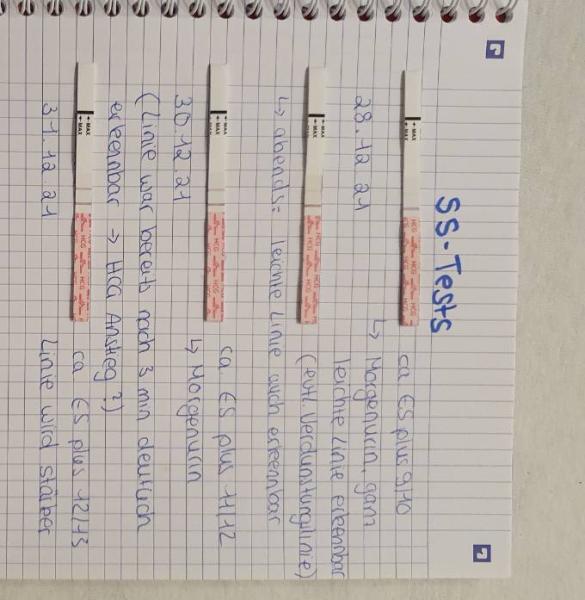 SS-Tests
ca ES plus 9/10
28.12.21
↳ Morgenurin, ganz
leichte Linie erkennbar
(evtl. Verdunstungslinie)
↳ abends: leichte Linie auch erkennbar
ca ES plus 11/12
30.12.21
↳ Morgenurin
(Linie war bereits nach 3 min deutlich
erkennbar → HCG Anstieg?)
ca ES plus 12/13
31.12.21
Linie wird stärker
MAX
HCG HCG HCG
MAX
HCG HCG HCG
MAX
HCG HCG HCG
MAX
HCG HCG HCG